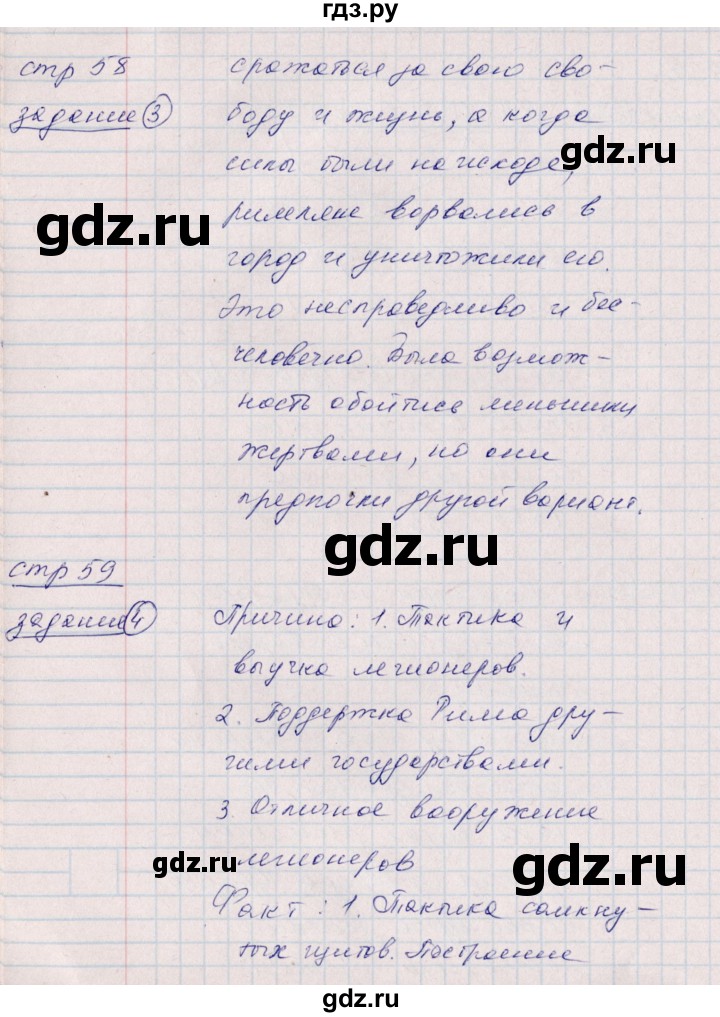 гдз.ру
стр 58
задание 3
сражаться за свою сво-
боду и жизнь, а когда
силы были на исходе,
gdz.ru
gdz.ru
римляне ворвались в
город и уничтожили его.
Это несправедливо и бес-
человечно. Была возмож-
ность обойтись меньшими
gdz.ru
жертвами, но они
предпочли другой вариант.
gdz.ru
стр 59
задание 4
Причина: 1. Тактика и
выучка легионеров.
2. Поддержка Рима дру-
гими государствами.
3. Отличное вооружение
легионеров
gdz.ru
gdz.ru
Факт: 1. Тактика сомкну-
тых щитов. Построение
gdz.ru